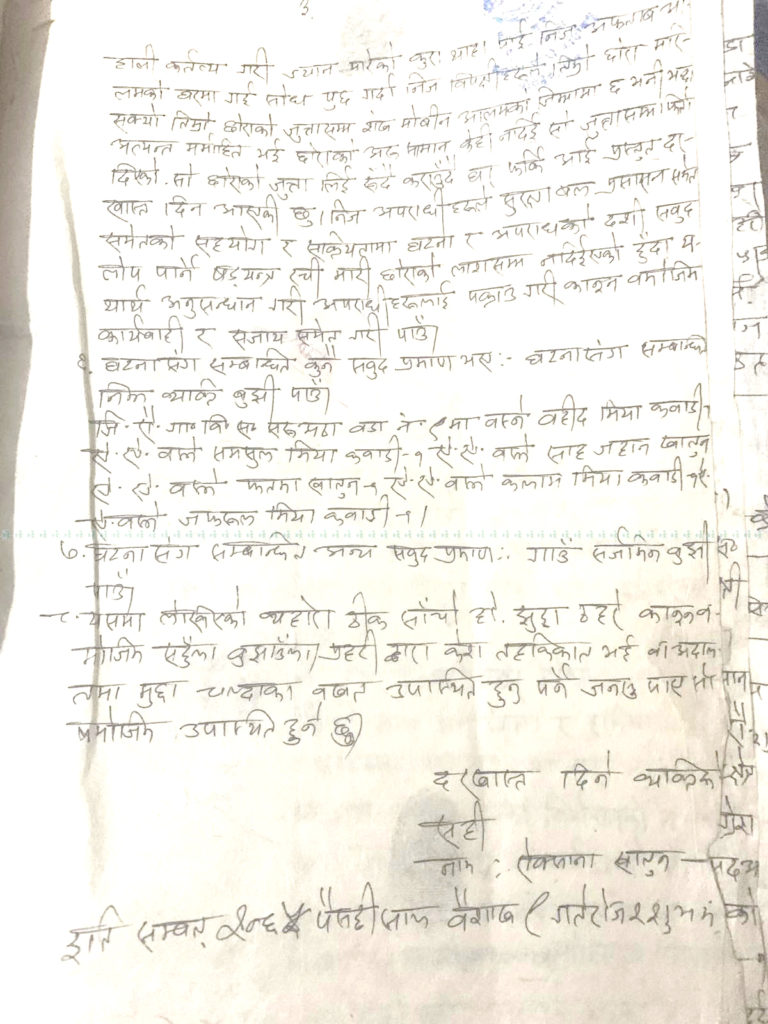 3.
हाली कर्तव्य गरी ज्यान मारेको कुरा थाहा पाई निज अफताब आ-
लमको घरमा गई सोध पुछ गर्दा निज विपक्षीहरूले तिम्रो छोरा मारि-
सक्यो तिम्रो छोराको जुत्तासम्म शेख मोबीन आलमको जिम्मामा छ भनी भन्दा
अत्यन्त मर्माहित भई छोराको अरू सामान केही नदिई सो जुत्तासम्म
दिएको सो छोराको जुत्ता लिई रूँदै कराउँदै घर फर्कि आई प्रस्तुत द-
रखास्त दिन आएकी छु। निज अपराधीहरूले सुरक्षा बल प्रसासन समेत
समेतको सहयोग र सक्रियतामा घटना र अपराधको दशी सवुद
लोप पार्ने षड्यन्त्र रची मारी छोराको लाससम्म नदिईएको हुँदा य-
थार्थ अनुसन्धान गरी अपराधीहरूलाई पक्राउ गरी कानून वमोजिम
कार्यवाही र सजाय समेत गरी पाउँ।
६. घटना संग सम्बन्धित कुनै सवुद प्रमाण भए :- घटना संग सम्बन्धित
निम्न व्यक्ति बुझी पाउँ।
जि. रौ. गा वि स वडा नं. ९ मा वस्ने वहीद मिया कवाडी-१
ऐ. ऐ. वस्ने समसुल मिया कवाडी-१ ऐ. ऐ. वस्ने साह जहान खातुन
ऐ. ऐ. वस्ने खातुन-१ ऐ. ऐ. वस्ने कलाम मिया कवाडी-१ ऐ.
ऐ. वस्ने मिया कवाडी-१।
७. घटना संग सम्बन्धित अन्य सवुद प्रमाण :- गाउँ सर्जमिन बुझी
पाउँ।
८. यसमा लेखिएको व्यहोरा ठीक साँचो हो. झुट्टा ठहरे कानून व-
मोजिम सहुँला बुझाउँला। प्रहरी द्वारा केश तहकिकात भई वा अदाल-
तमा मुद्दा चल्दाका वखत उपास्थित हुनु पर्ने जनाउ पाए सो
वमोजिम उपास्थित हुने छु।
दरखास्त दिने व्यक्तिको
सही
नाम :. खातुन
इति सम्वत् २०६ साल वैशाख ९ गते रोज २ शुभम्